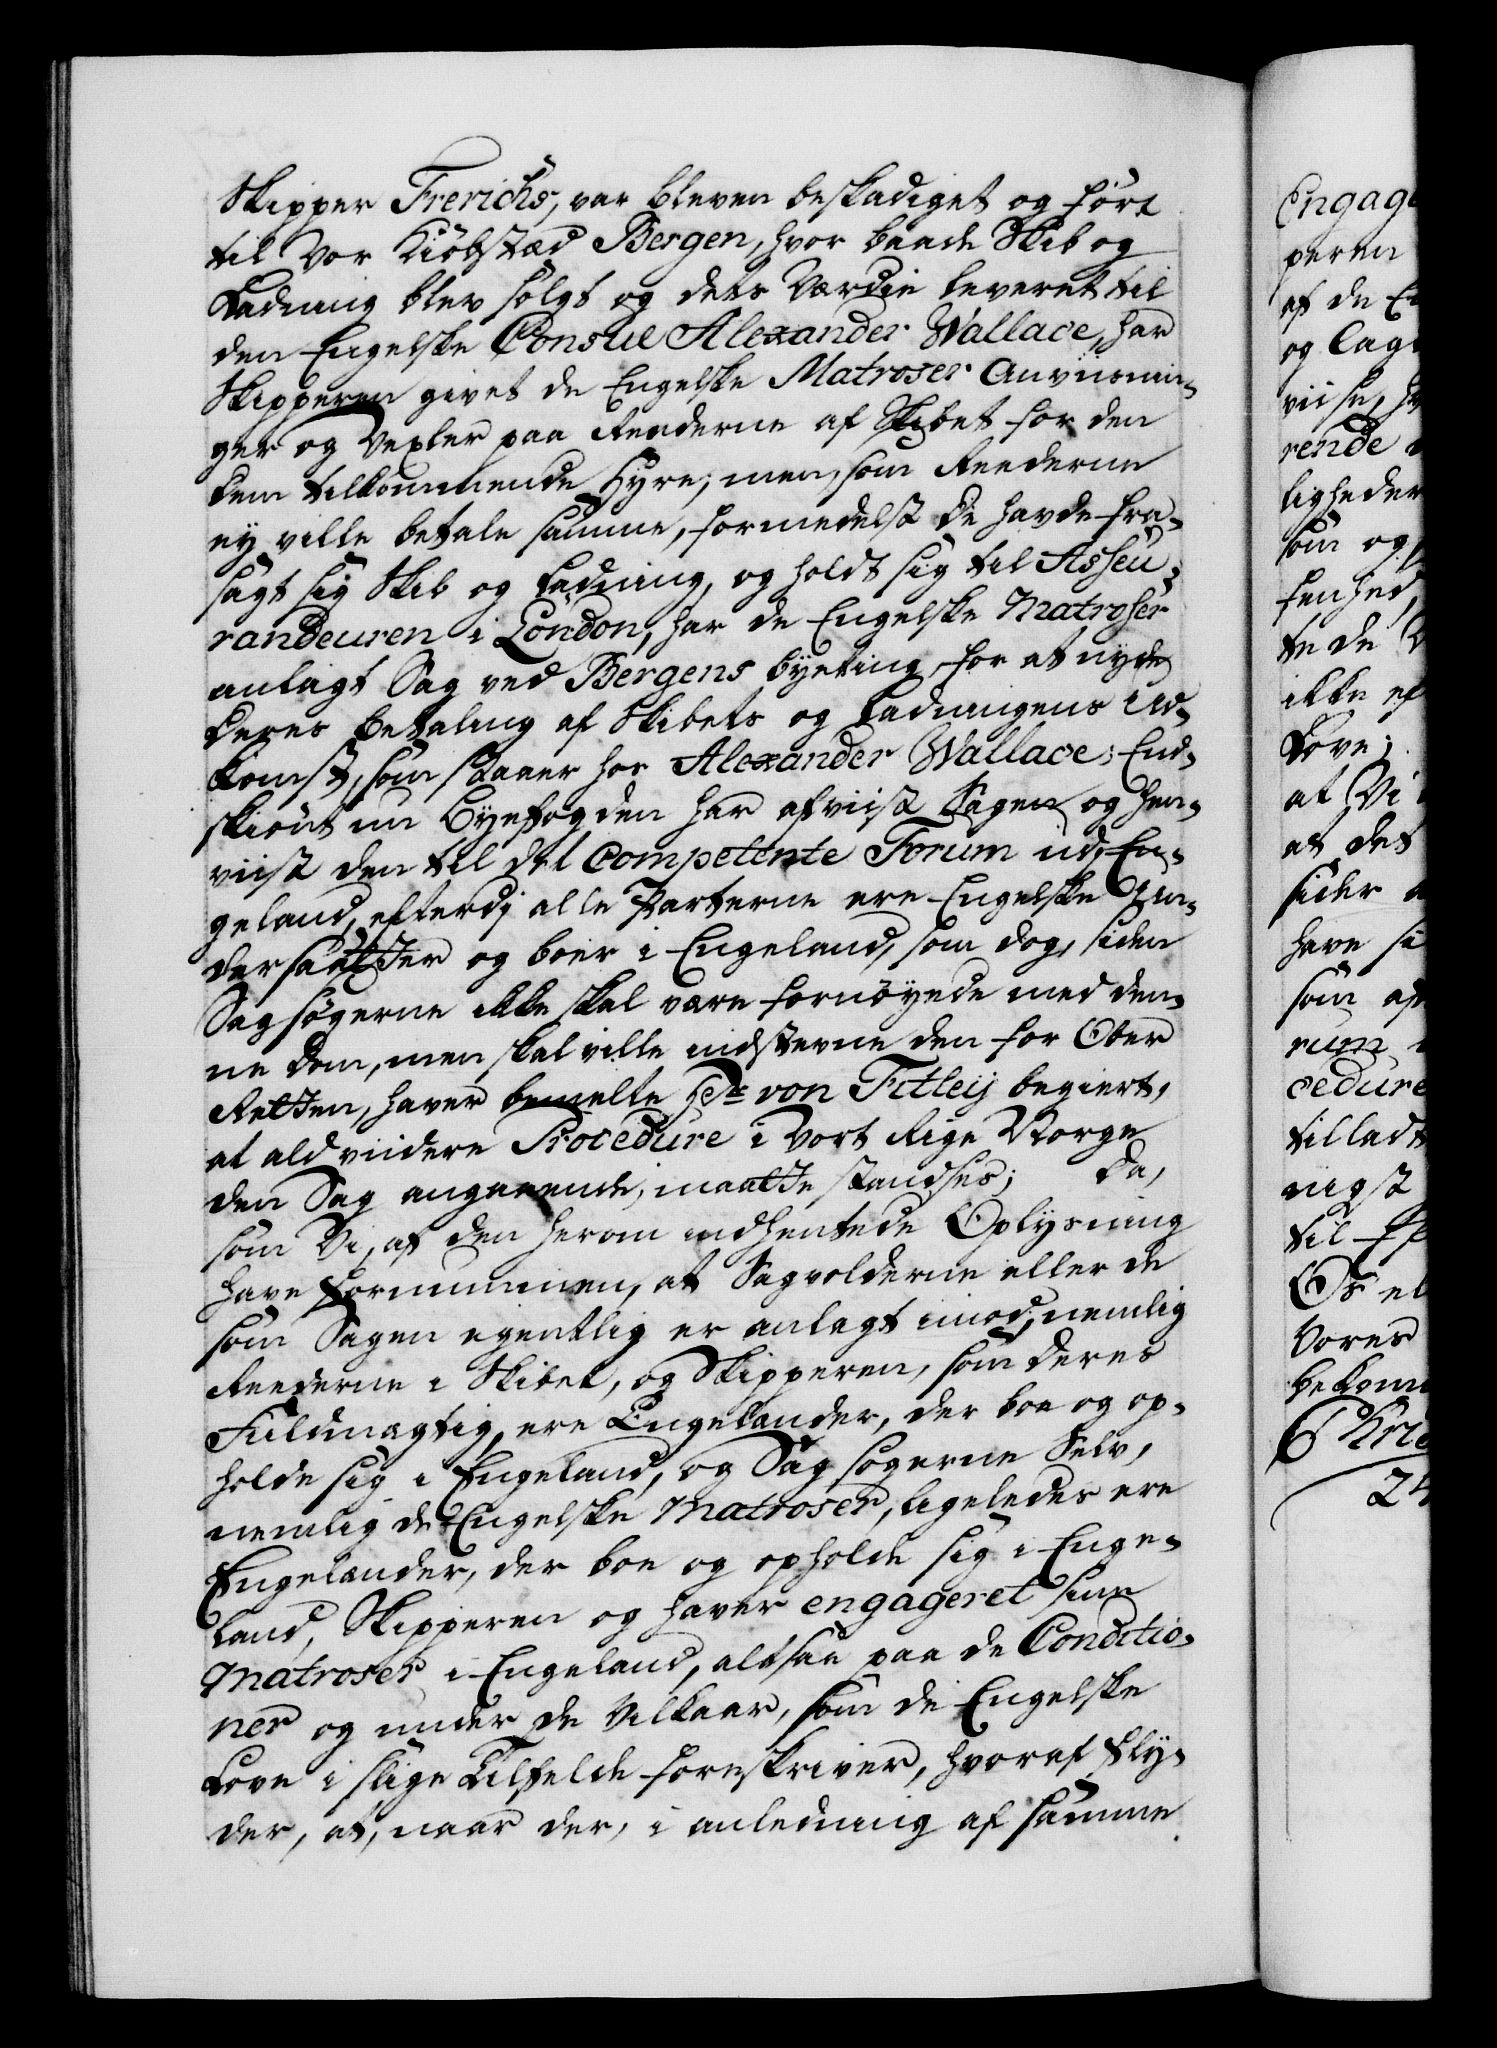 Skipper Frerichs, var bleven beskadiget og ført
til Vor Kiöbstæd Bergen, hvor baade Skib og
Ladning blev solgt og dets Værdie leveret til
den Engelske Consul Alexander Wallace, har
Skipperen givet de Engelske Matroser Anviisnin-
ger og Vexler paa Reederne af Skibet for den
dem tilkommende Hyre; men, som Reederne
ey ville betale samme, formedelst de havde fra-
sagt sig Skib og Ladning, og holdt sig til Asseu-
randeuren i London, har de Engelske Matroser
anlagt Sag ved Bergens Byeting, for at nyde
deres Betaling af Skibets og Ladningens Ud-
komst, som staaer hos Alexander Wallace; End-
skiönt nu Byefogden har afviist Sagen og hen-
viist den til det Competente Forum ud i En-
geland, efterdj alle Parterne ere Engelske Un-
dersaatter og boer i Engeland, som dog, siden
Sagsögerne ikke skal være fornöyede med den-
ne Dom, men skal ville indstevne den for Ober
Retten, haver bemelte Hr. von Titleij begiert,
at ald viidere Procedure i Vort Rige Norge
den Sag angaaende, maatte standses; Da,
som Vi, af den herom indhentede Oplysning
have fornummen, at Sagvolderne eller de
som Sagen egentlig er anlagt imod, nemlig
Reederne i Skibet, og Skipperen, som deres
Fuldmægtig, ere Engelænder, der boe og op-
holde sig i Engeland, og Sagsögerne Selv,
nemlig de Engelske Matroser, ligeledes ere
Engelænder, der boe og opholde sig i Enge-
land, Skipperen og haver engageret sine
Matroser i Engeland, altsaa paa de Conditio-
ner og under de Vilkaar, som de Engelske
Love i slige Tilfelde foreskriver, hvoraf flÿ-
der, at, naar der, i anledning af samme
Engage
peren
af de
og
viise,
rende
ligheder
som og
fenhed,
te de
ikke
Love;
at Vi
at det
sider
have
som
rum
cedure
tilladt
nigst
til
Os
Vores
bekom